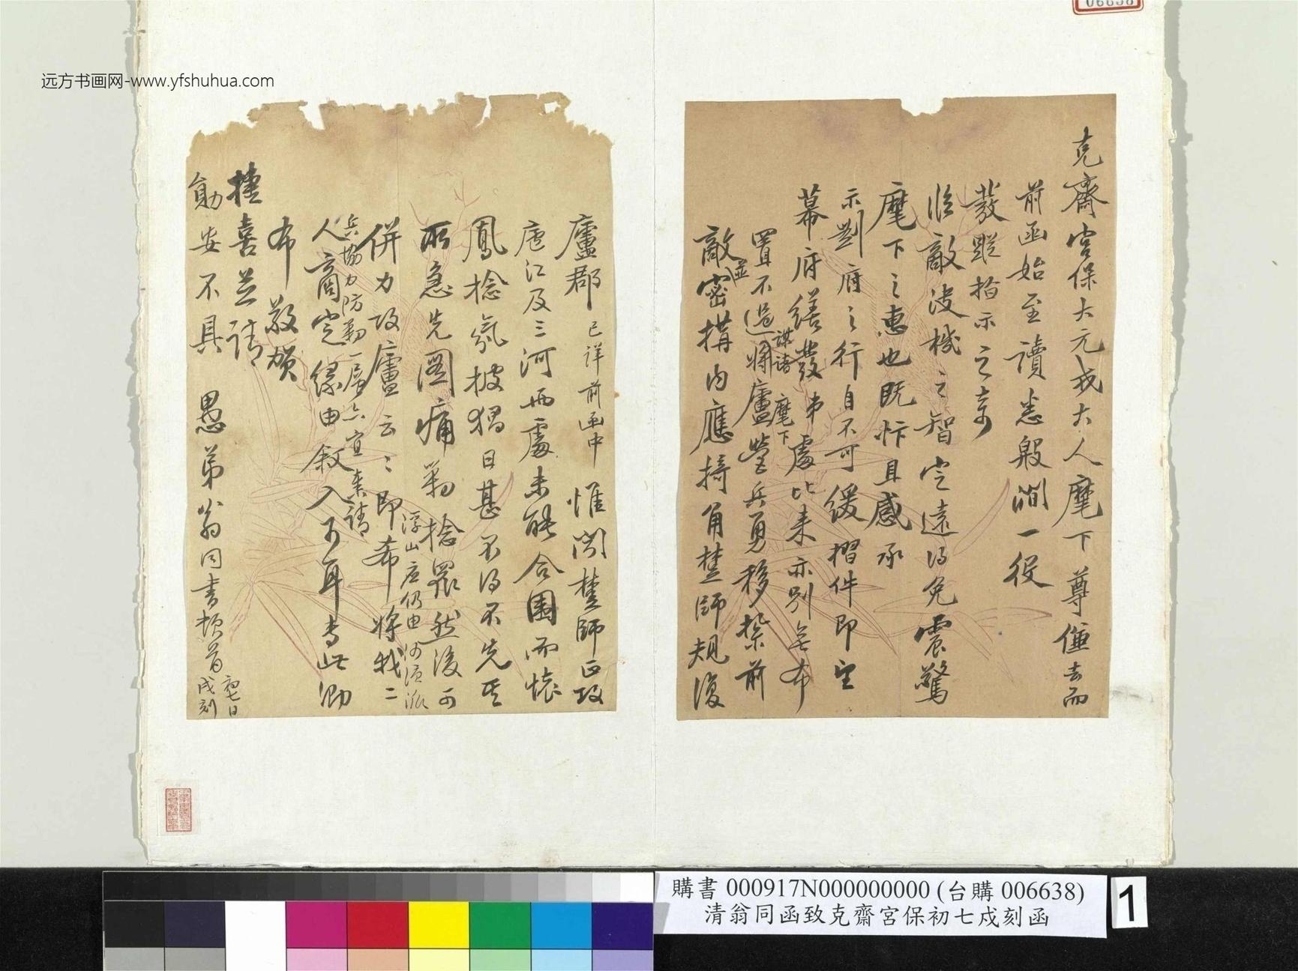 远方书画网-www.yfshuhua.com
006638
克齋宮保大元戎大人麾下尊僱去而
前函始至讀悉殷
發蹤指示之奇
臨敵決機之智定遠得免震驚
麾下之惠也既忭且感承
示劉府之行自不可緩摺件即呈
幕府繕發弟處比來亦別無布
置不過將廬營兵勇移紮前
敵並密搆內應掎角楚師規復
謀諸麾下
廬郡已詳前函中惟聞楚師正攻
廬江及三河兩處未能合圍而懷
鳳捻氛披猖日甚不得不先其
所急先圖痛剿捻眾然後可
併力攻廬云云即希將我二
浮山应仍由
人商定緣由敘入可耳專此泐
兵協力防剿一層亦宜奏請
布敬賀
捷喜並請
勛安不具
愚弟翁同書頓首
初七日
戌刻
購書 000917N000000000 (台購 006638)
清翁同函致克齋宮保初七戌刻函
1